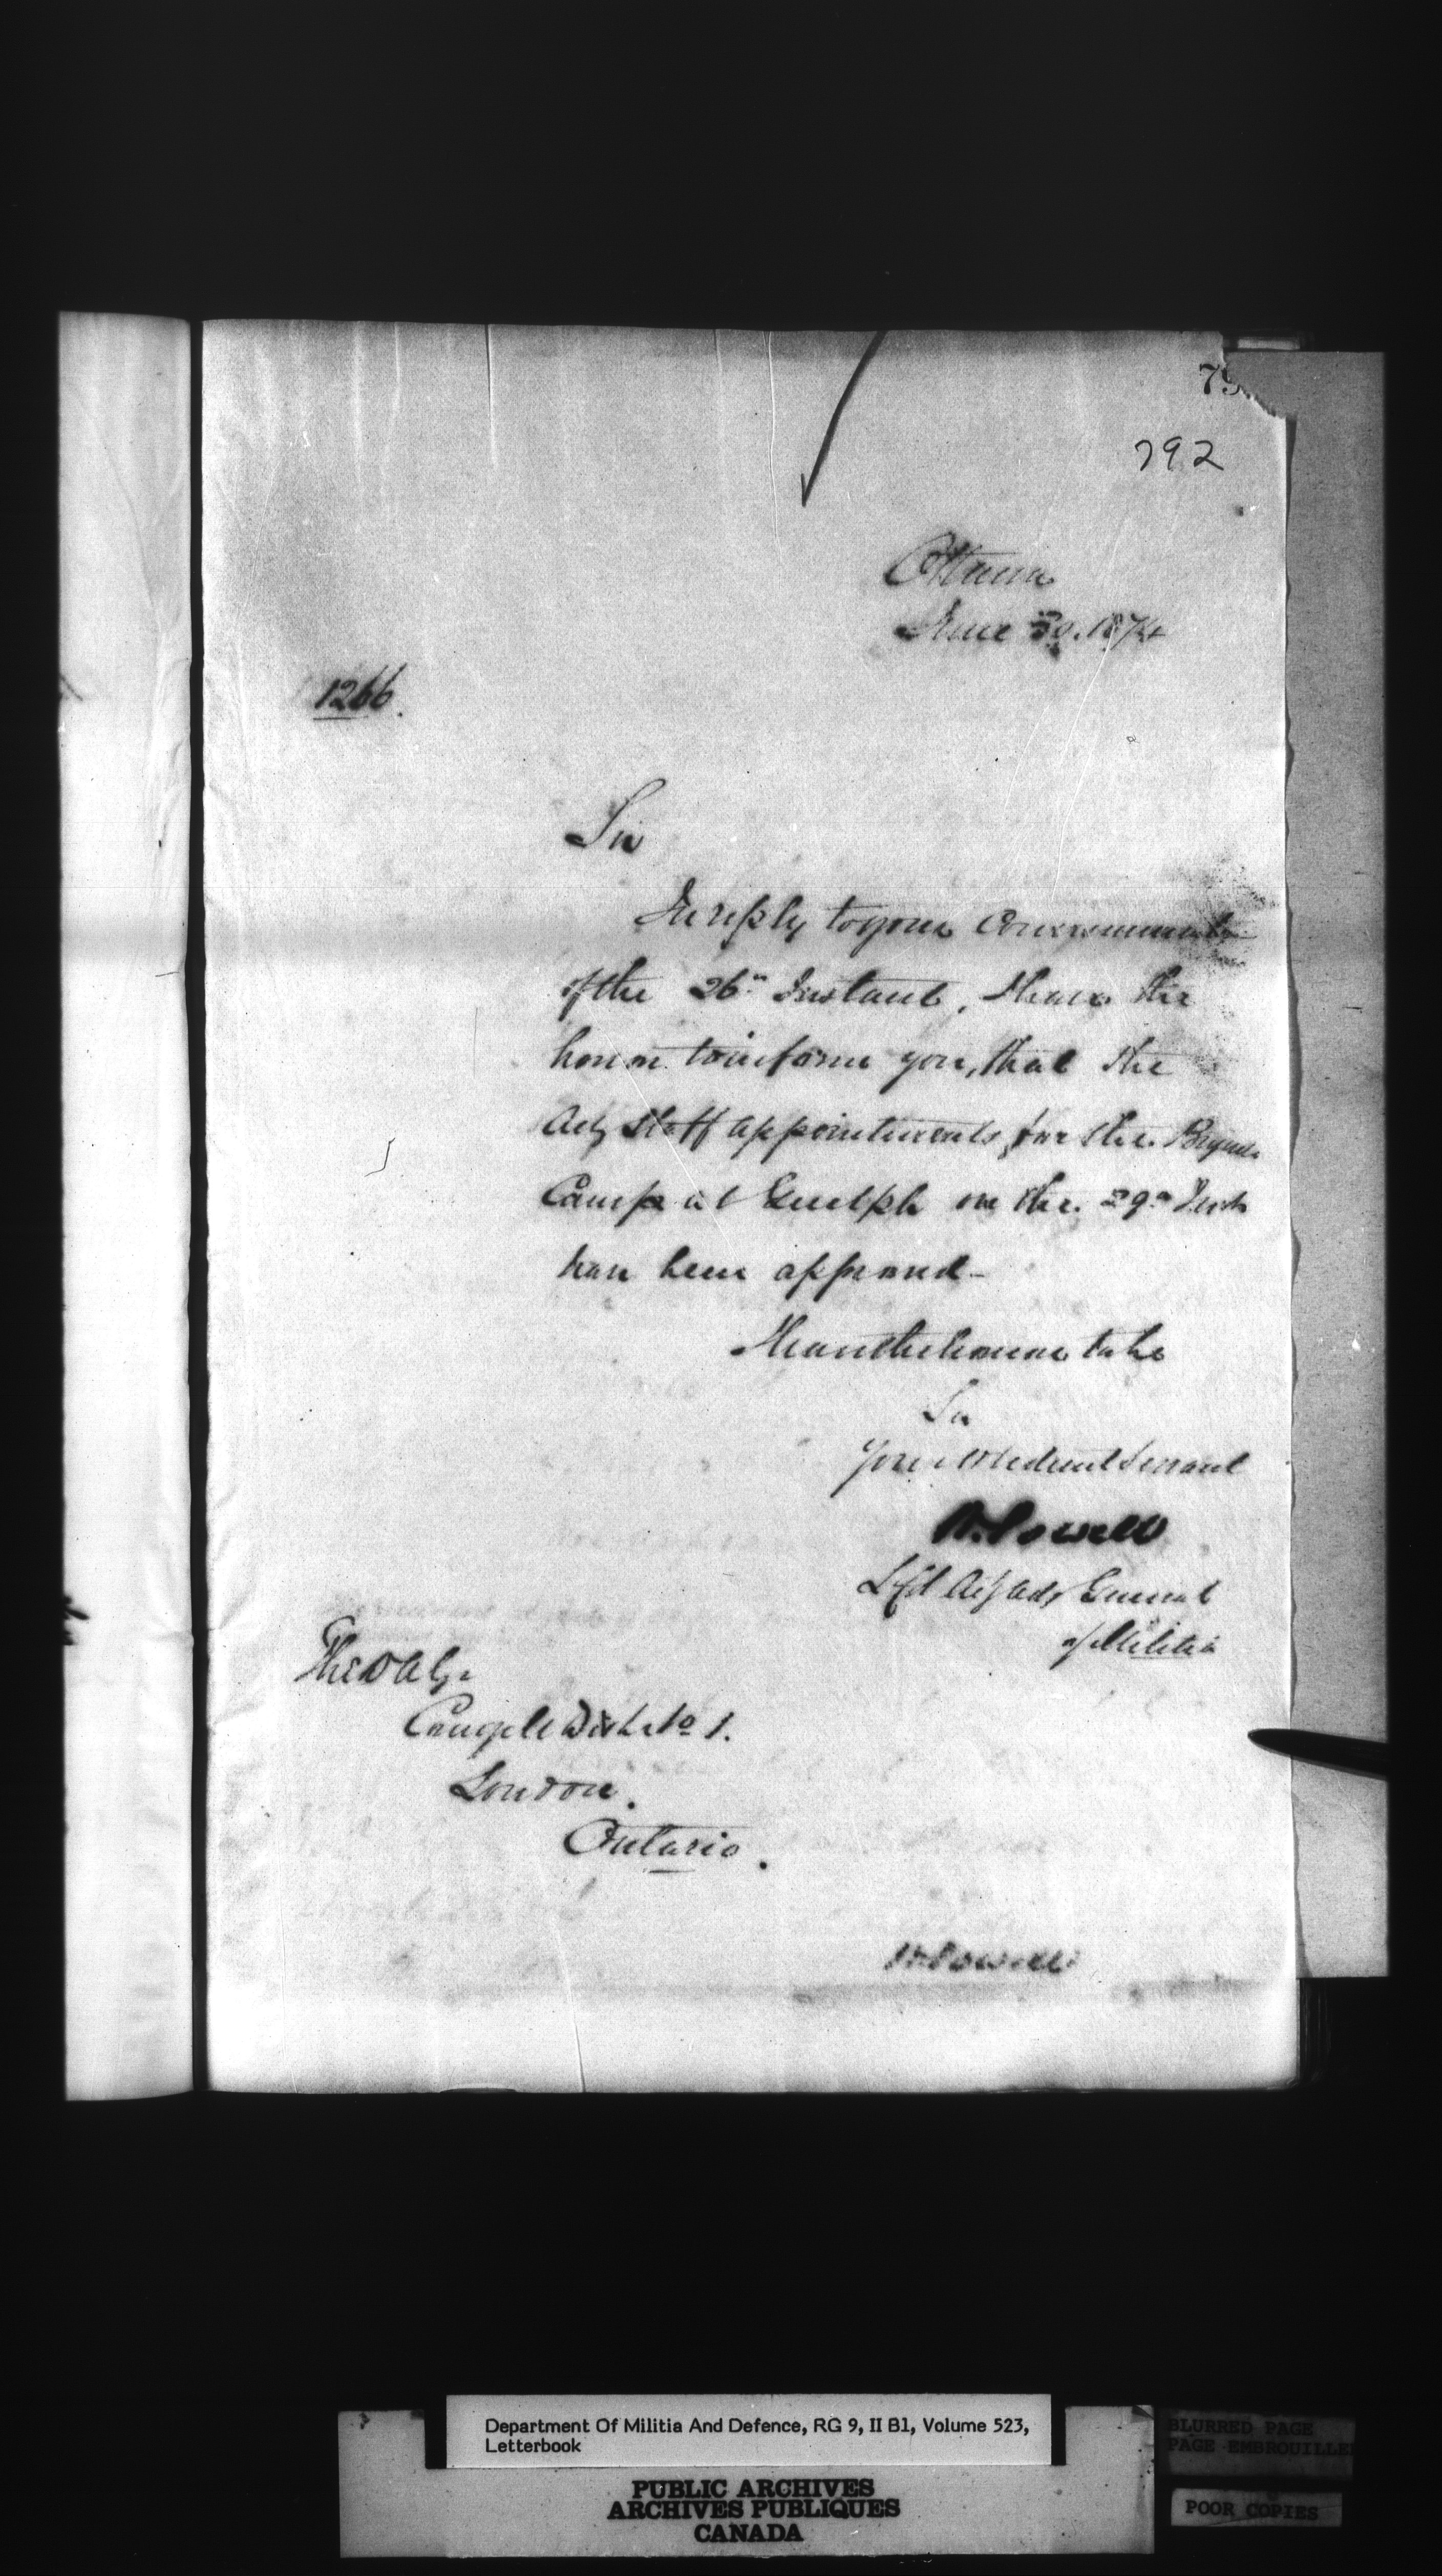 79
792
Ottawa
June 30. 1874
1266.
Sir
In reply to your
of the 26th Instant, I have the
honor to inform you, that the
Actg Staff appointments for the Brigade
Camp at Guelph on the 29th Inst
have been approved -
I have the honour to be
Sir
Your Obedient Servant
W. Powell
Lt Col Actg Adjt General
of Militia
The D A G.
Comg Mily Dist No 1.
London.
Ontario.
W. Powell
Department Of Militia And Defence, RG 9, II B1, Volume 523,
Letterbook
BLURRED PAGE
PAGE EMBROUILLEE
PUBLIC ARCHIVES
ARCHIVES PUBLIQUES
CANADA
POOR COPIES